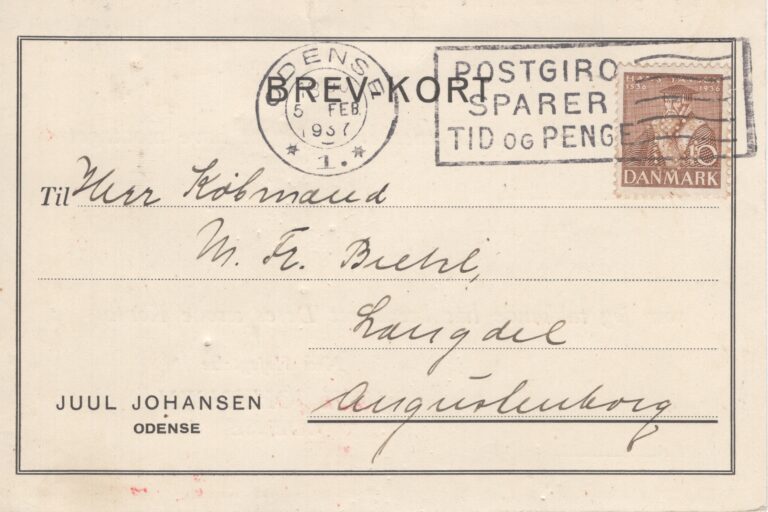 ODENSE
5 FEB
1937
* 1. *
BREV-KORT
POSTGIRO
SPARER
TID OG PENGE
1536 1936
10
DANMARK
Til Herr Købmand
M. Fr.
Langdel
Augustenborg
JUUL JOHANSEN
ODENSE